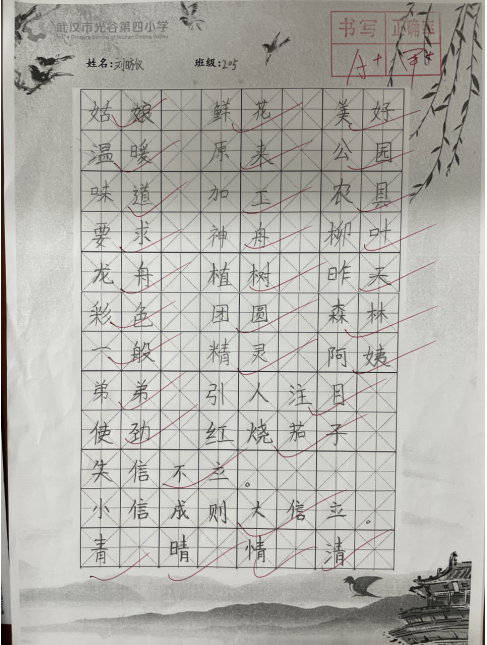 武汉市光谷第四小学
书写 正确率
A+
班级:205
姑娘 鲜花 美好
温暖 原来 公园
味道 加工 农具
要求 神舟 柳叶
龙舟 植树 昨天
彩色 团圆 森林
一般 精灵 阿姨
弟弟 引人注目
使劲 红烧茄子
失信不立。
小信成则大信立。
青 晴 情 清